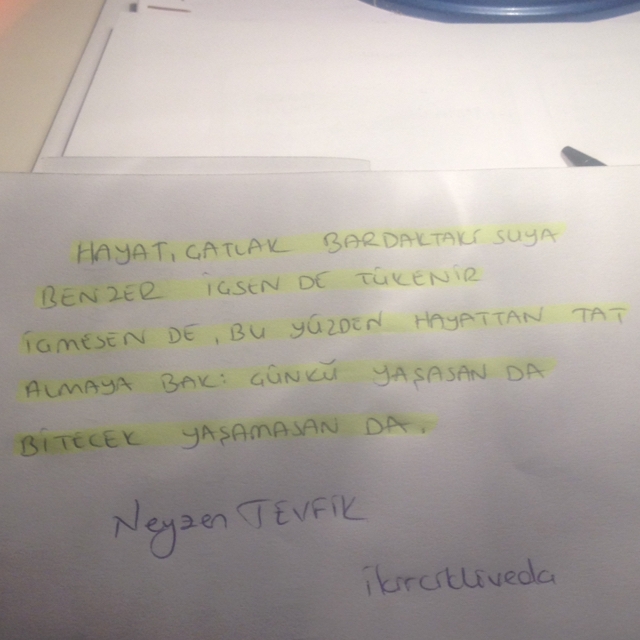 HAYAT, ÇATLAK BARDAKTAKİ SUYA
BENZER İÇSEN DE TÜKENİR
İÇMESEN DE, BU YÜZDEN HAYATTAN TAT
ALMAYA BAK: ÇÜNKÜ YAŞASAN DA
BİTECEK YAŞAMASAN DA.
Neyzen TEVFİK